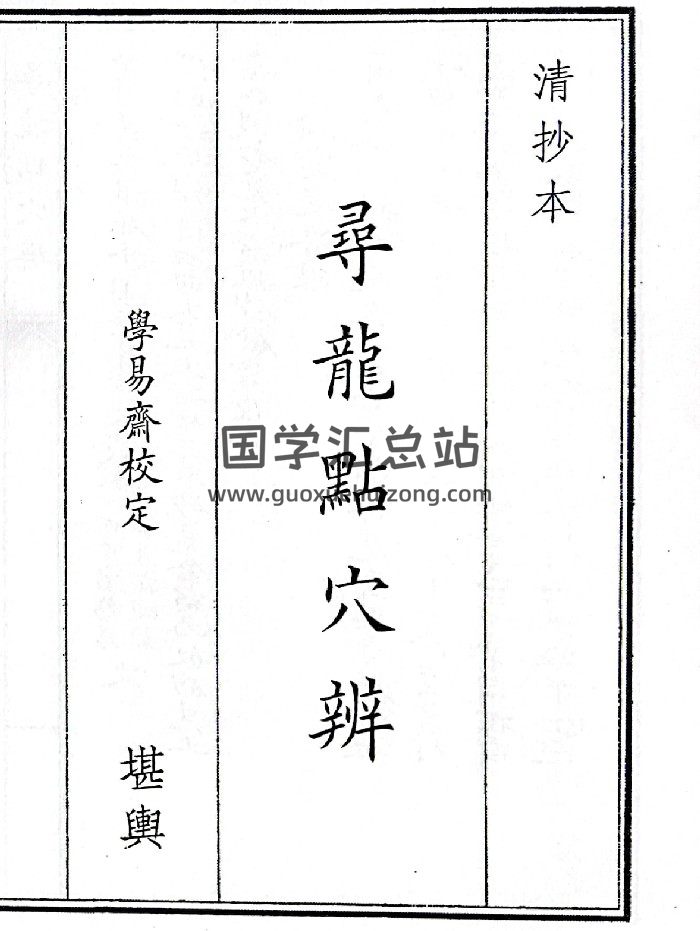 清抄本
尋龍點穴辨
學易齋校定
堪輿
国学汇总站
www.guoxuehuizong.com